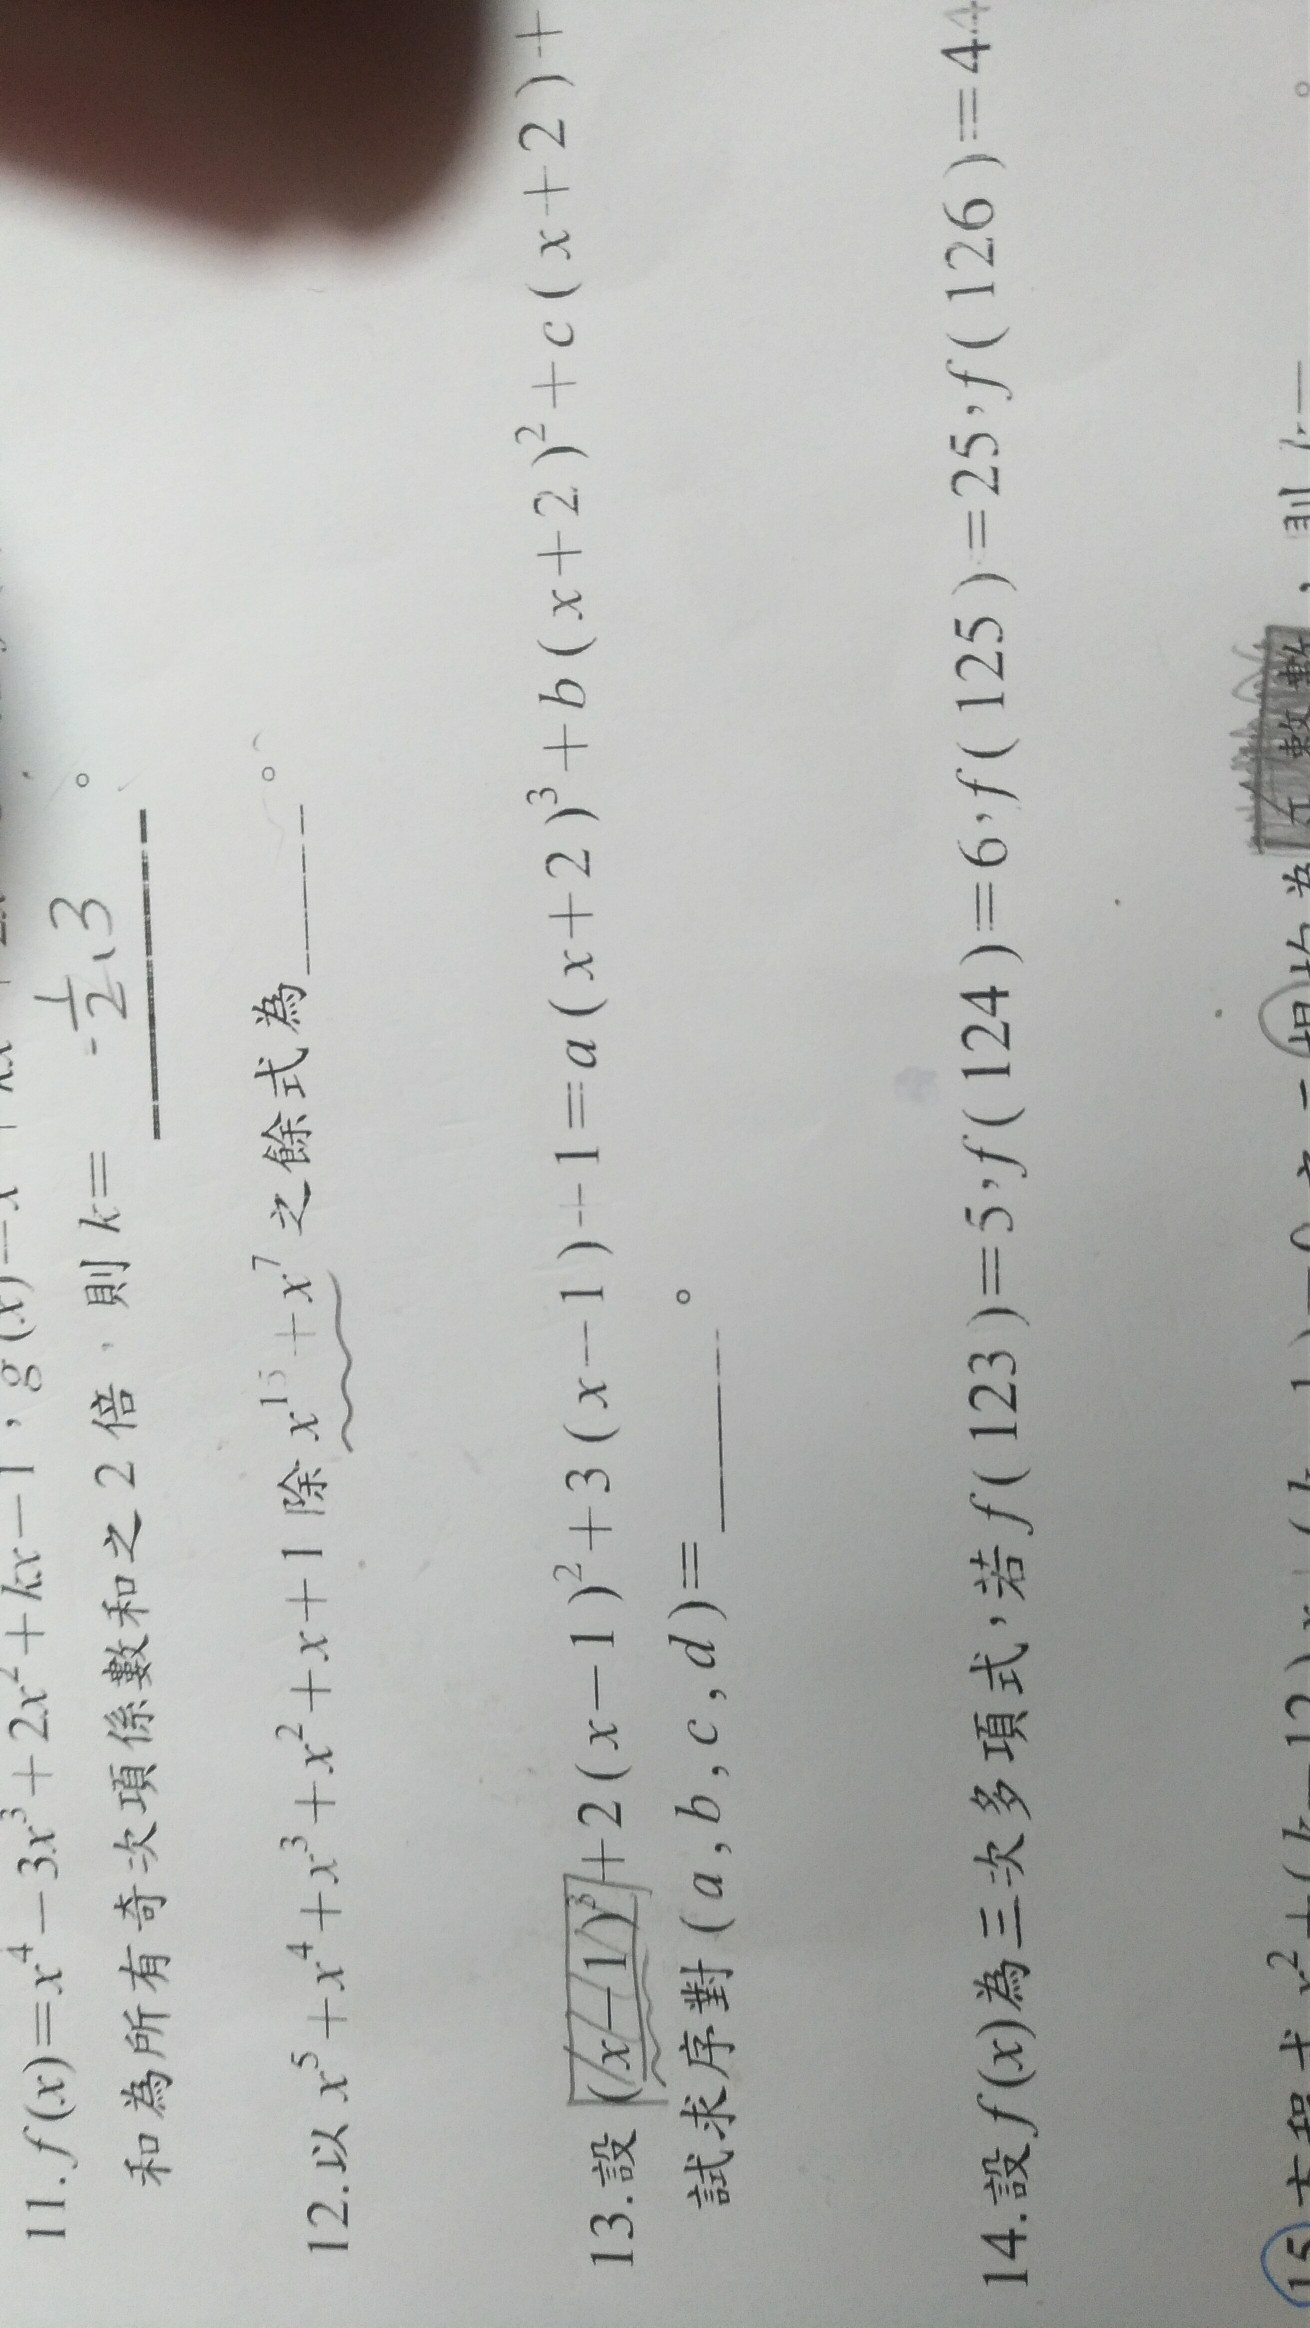 11. f(x)=x⁴-3x³+2x²+kx-1, g(x)=x
和為所有奇次項係數和之2倍,則k= -1/2、3 。
12.以x⁵+x⁴+x³+x²+x+1除x¹⁵+x⁷之餘式為____。
13.設(x-1)³+2(x-1)²+3(x-1)+1=a(x+2)³+b(x+2)²+c(x+2)+
試求序對(a,b,c,d)=____。
14.設f(x)為三次多項式,若f(123)=5,f(124)=6,f(125)=25,f(126)=44
15.方程式x²+(k-12)x